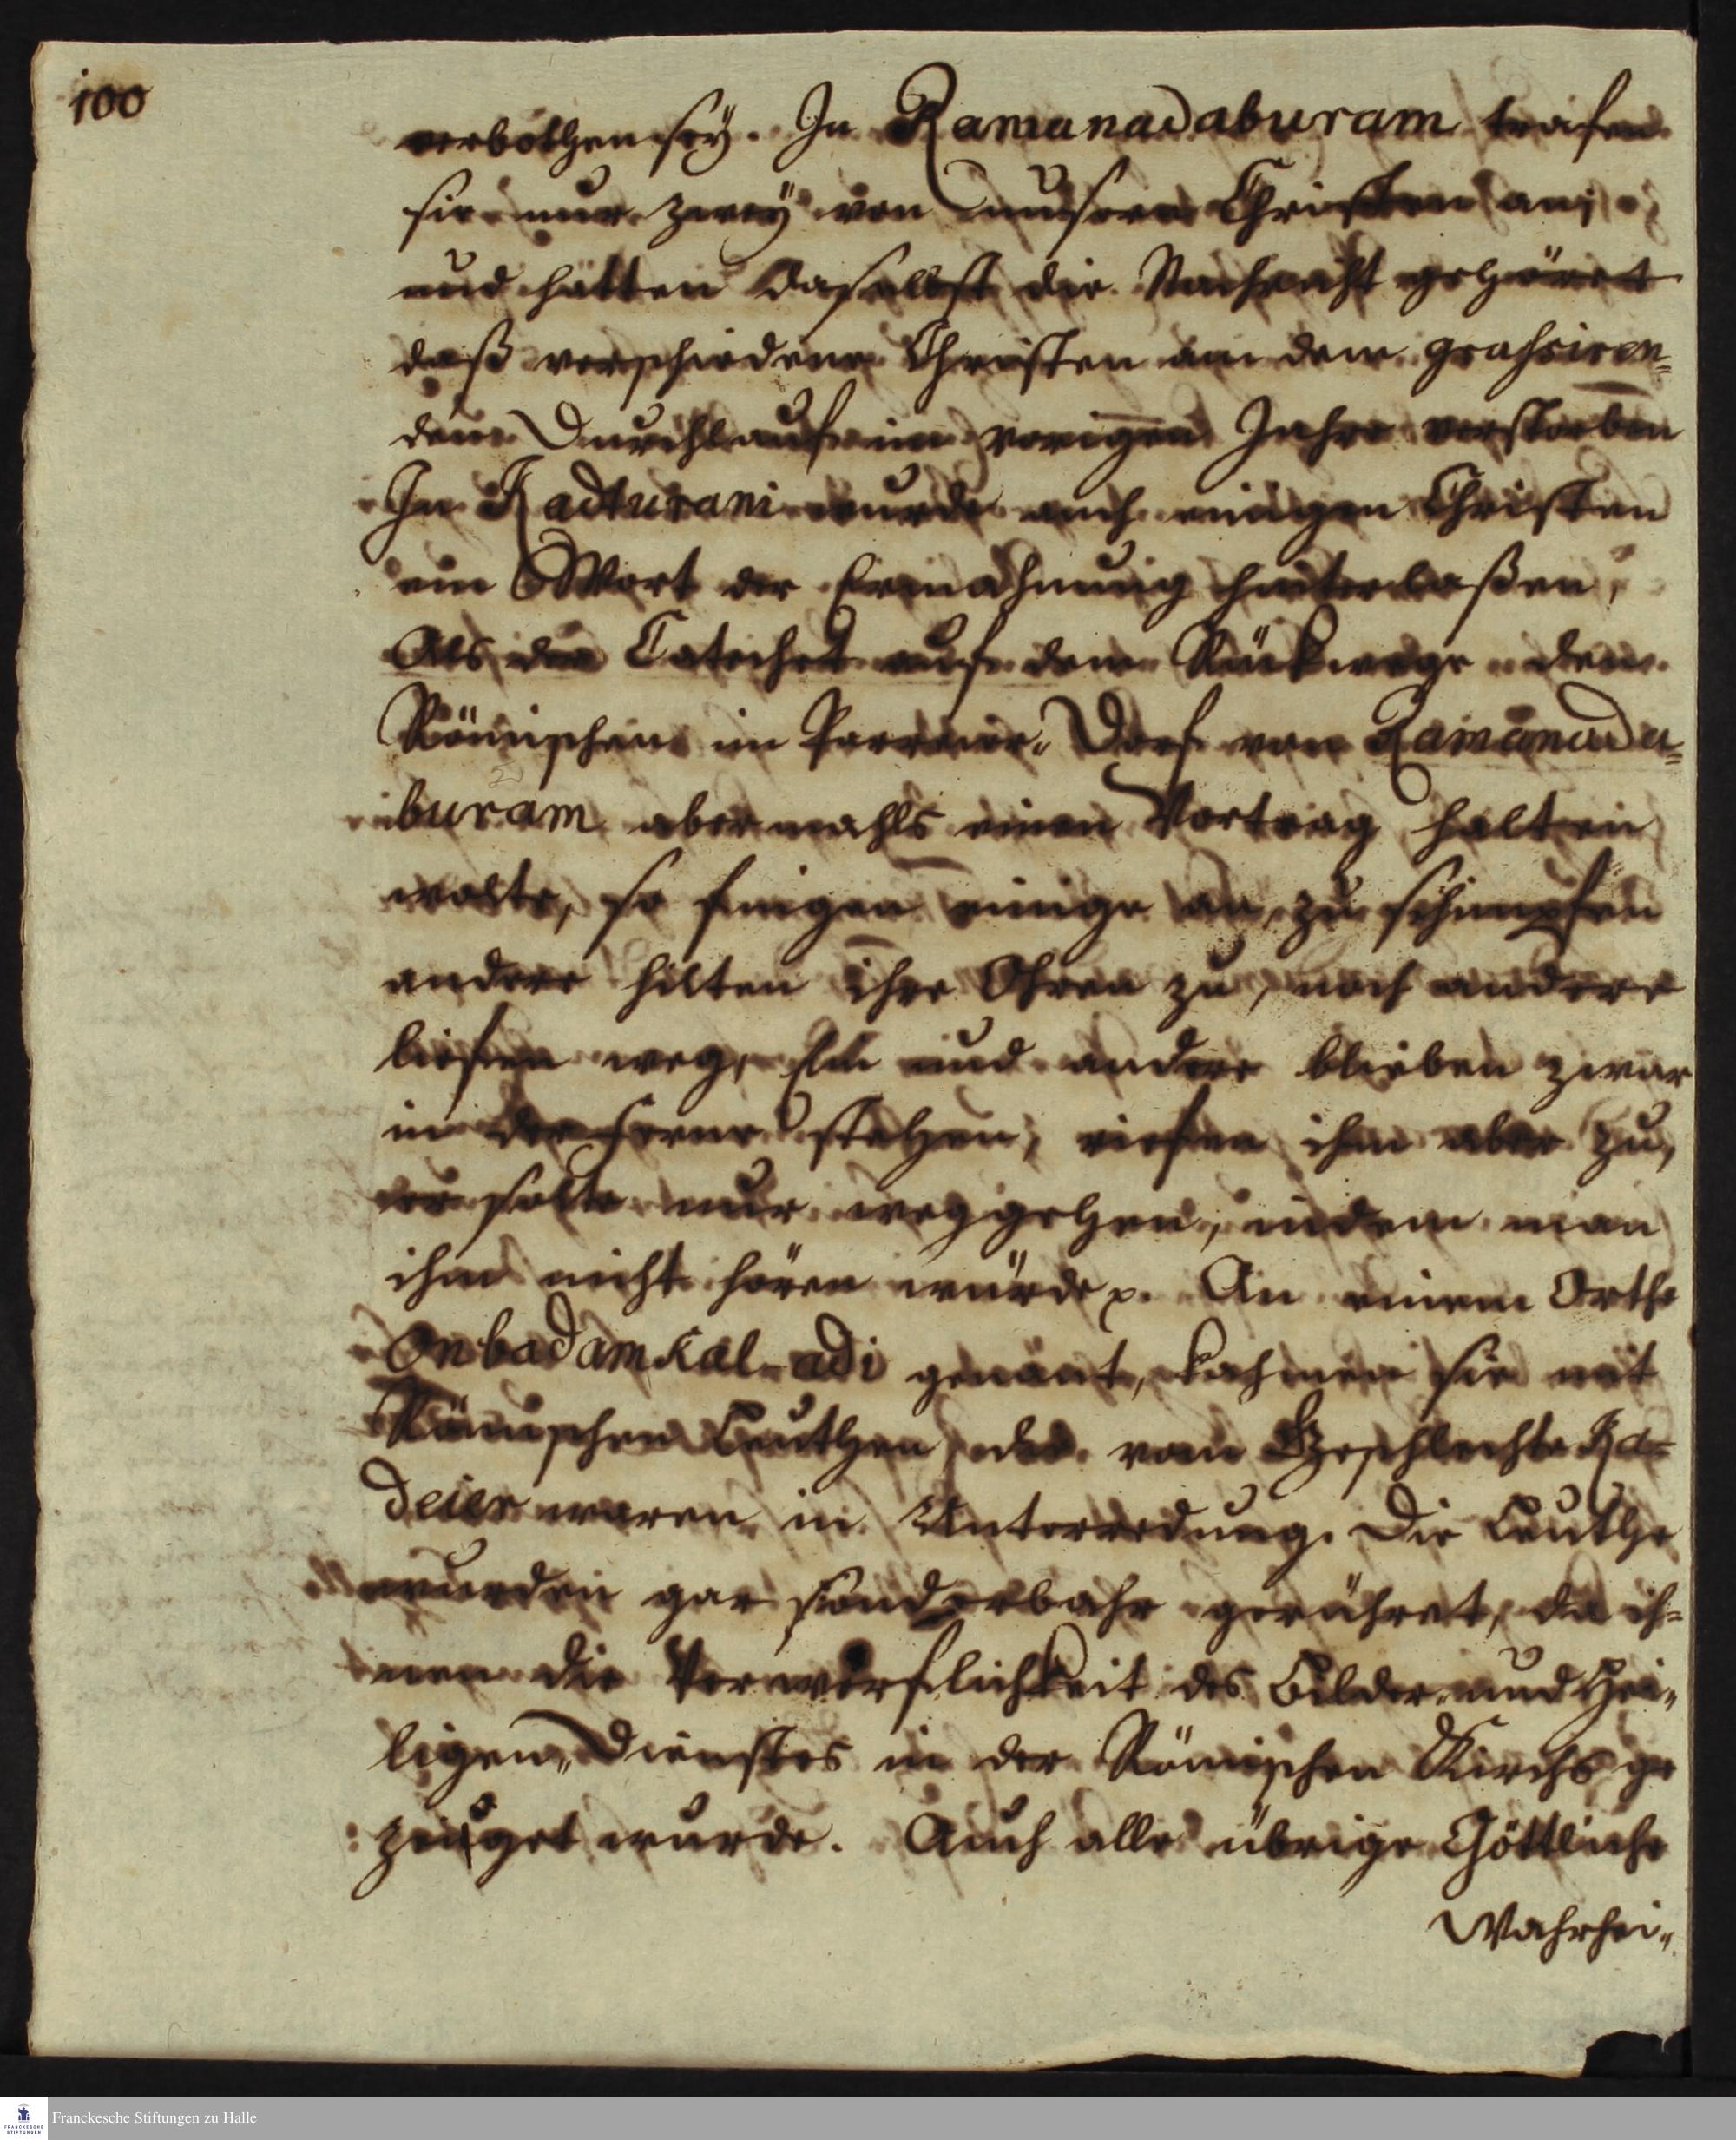 100
verbothen seÿ. In Ramanadaburam trafen
sie nur zweÿ von unsern Christen an;
und hatten daselbst die Nachricht gehöret
daß verschiedene Christen an dem grahsiren=
dem Durchlauf im vorigen Jahre verstorben
In Kadturani wurde auch einigen Christen
ein Wort der Ermahnung hinterlaßen,
Als der Catechet auf dem Rückwege dem
Römischen im Parreier„Dorf von Ramanada=
buram abermahls einen Vortrag halten
wolte, so fingen einige an, zu schimpfen
andere hilten ihre Ohren zu, noch andere
liefen weg, Ein und andere blieben zwar
in der ferne stehen, riefen ihm aber zu,
er solte nur weggehen, indem man
ihm nicht hören würde p. An einem Orthe
Onbadamkal-adi genant, kahmen sie mit
Römischen Leuthen, die vom Geschlechte Ka=
deier waren in Unterredung. Die Leuthe
wurden gar sonderbahr gerühret, da ih=
nen die Verwerflichkeit des Bilder„und Hei„
ligen„Dienstes in der Römischen Kirche ge
zeuget wurde. Auch alle übrige Göttliche
Wahrhei„
Franckesche Stiftungen zu Halle
FRANCKESCHE
STIFTUNGEN